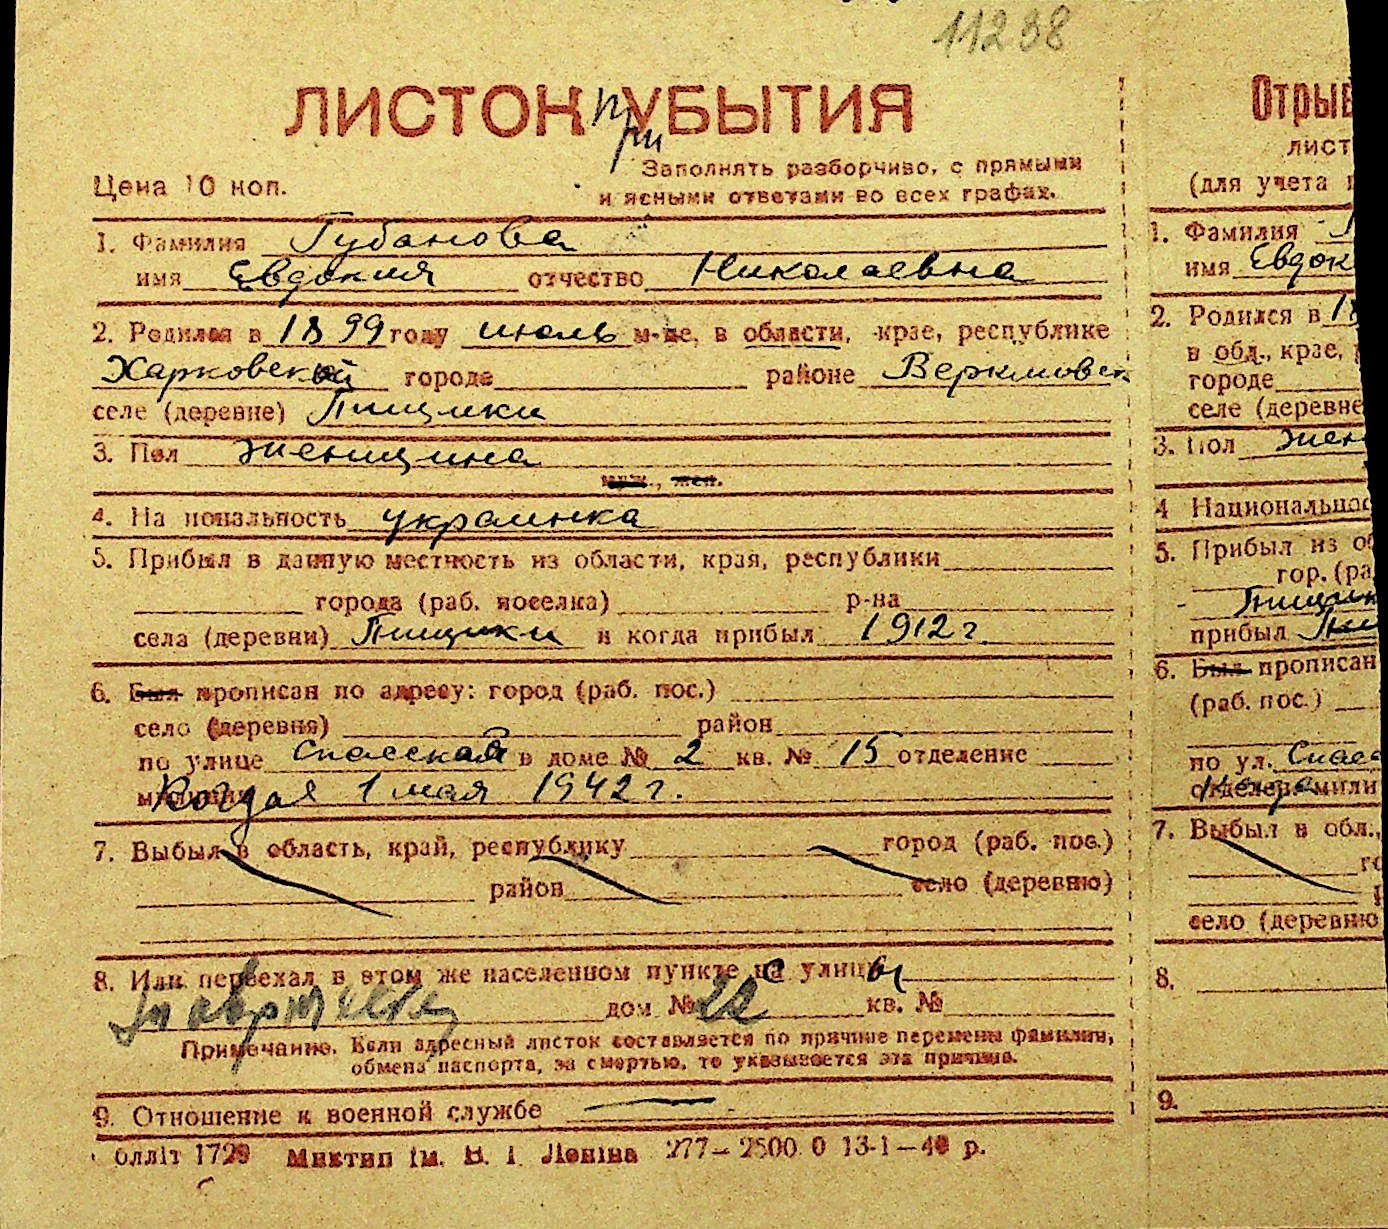 11238
ЛИСТОК УБЫТИЯ
при
Цена 10 коп.
Заполнять разборчиво, с прямыми
и ясными ответами во всех графах.
1. Фамилия Губанова
имя Евдокия отчество Николаевна
2. Родился в 1899 году июль м-це, в области, крае, республике
Харковской городе районе
селе (деревне) Пищики
3. Пол женщина
муж., жен.
4. Национальность украинка
5. Прибыл в данную местность из области, края, республики
города (раб. поселка) р-на
села (деревни) Пищики и когда прибыл 1912 г.
6. Был прописан по адресу: город (раб. пос.)
село (деревня) район
по улице Спасская в доме № 2 кв. № 15 отделение
милиции Когда 1 мая 1942 г.
7. Выбыл в область, край, республику город (раб. пос.)
район село (деревню)
8. Или переехал в этом же населенном пункте с улицы
дом № 22 кв. №
Примечание. Если адресный листок составляется по причине перемены фамилии,
обмена паспорта, за смертью, то указывается эта причина.
9. Отношение к военной службе
облліт 1729 Миктип ім. В. І. Леніна 277—2500 0 13-1—40 р.
Отрыв
лист
(для учета
1. Фамилия
имя Евдок
2. Родился в 18
в обл., крае,
городе
селе (деревне
3. Пол жен
4 Национальнос
5. Прибыл из об
гор. (ра
Пищики
прибыл
6. Был прописан
(раб. пос.)
по ул. Спасс
отделение мили
7. Выбыл в обл.,
го
село (деревню
8.
9.